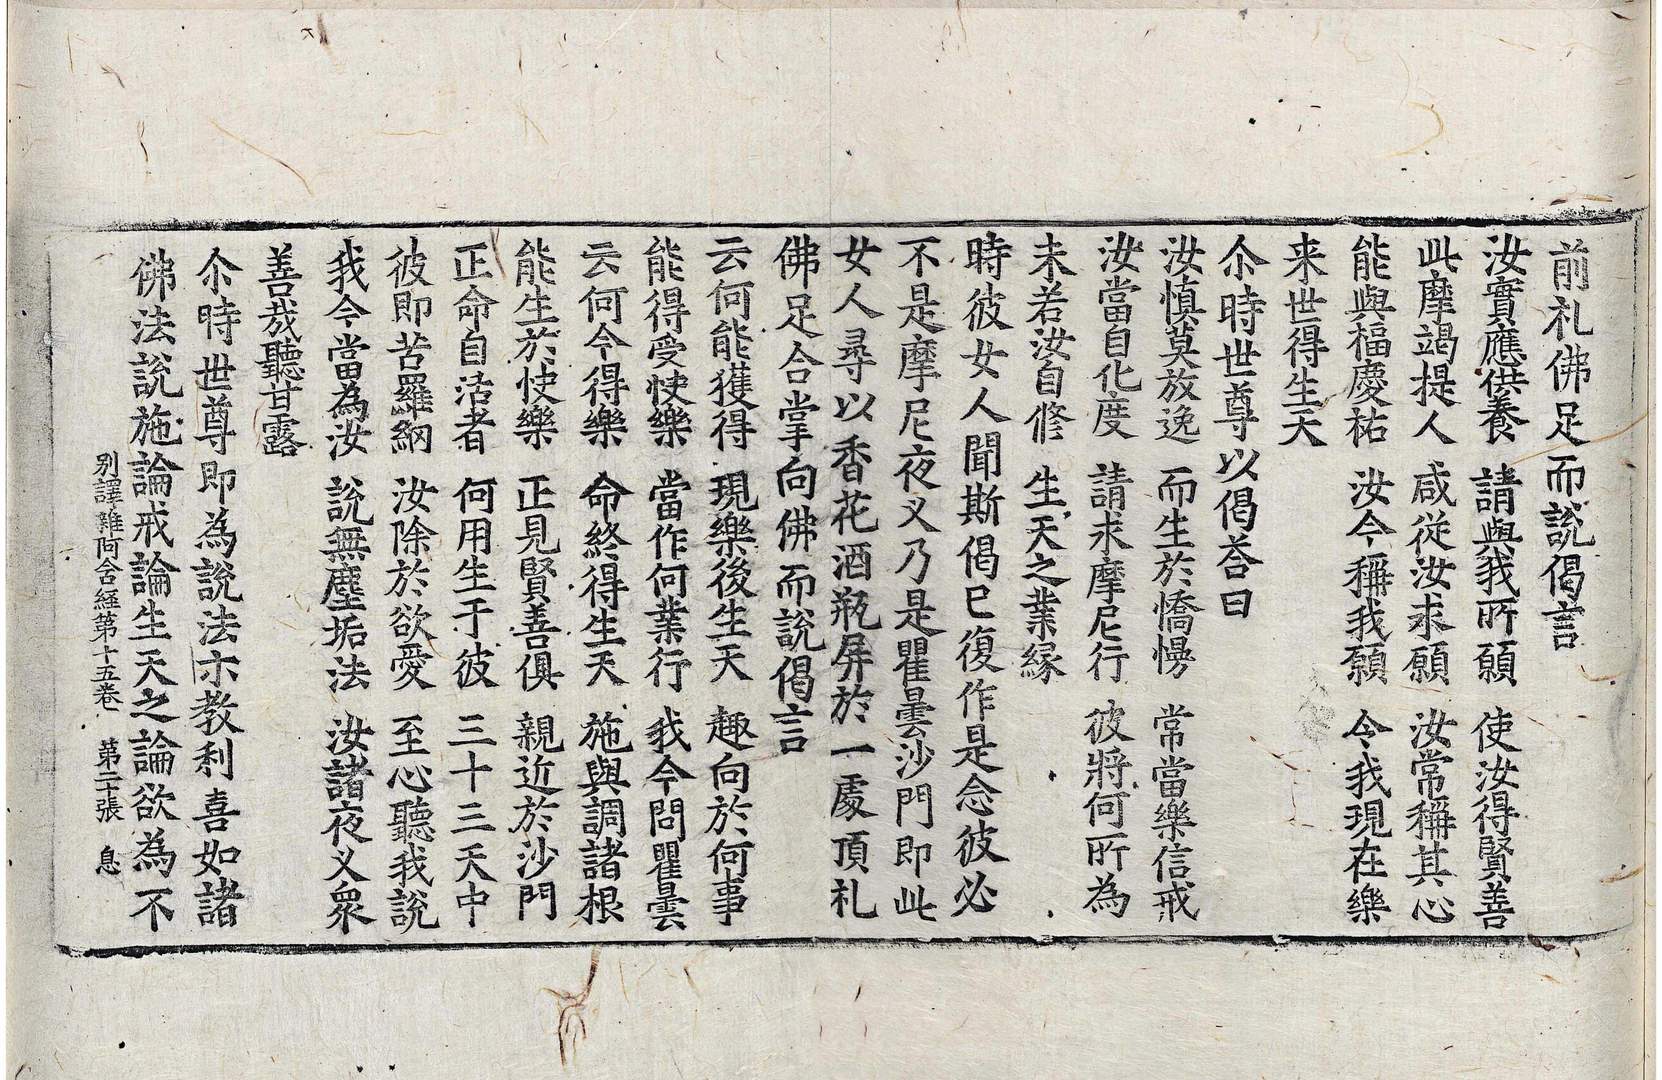 前礼佛足而說偈言
汝實應供養　請與我所願　使汝得賢善
此摩竭提人　咸從汝求願　汝常稱其心
能與福慶祐　汝今稱我願　令我現在樂
来世得生天
尒時世尊以偈荅曰
汝慎莫放逸　而生於憍慢　常當樂信戒
汝當自化度　請求摩尼行　彼將何所為
未若汝自修　生天之業緣
時彼女人聞斯偈已復作是念彼必
不是摩尼夜叉乃是瞿曇沙門即此
女人尋以香花酒瓶屏於一處頂礼
佛足合掌向佛而說偈言
云何能獲得　現樂後生天　趣向於何事
能得受快樂　當作何業行　我今問瞿曇
云何今得樂　命終得生天　施與調諸根
能生於快樂　正見賢善俱　親近於沙門
正命自活者　何用生于彼　三十三天中
彼即苦羅網　汝除於欲愛　至心聽我說
我今當為汝　說無塵垢法　汝諸夜叉衆
善哉聽甘露
尒時世尊即為說法示教利喜如諸
佛法說施論戒論生天之論欲為不
別譯雜阿含経第十五卷　第二十張　息